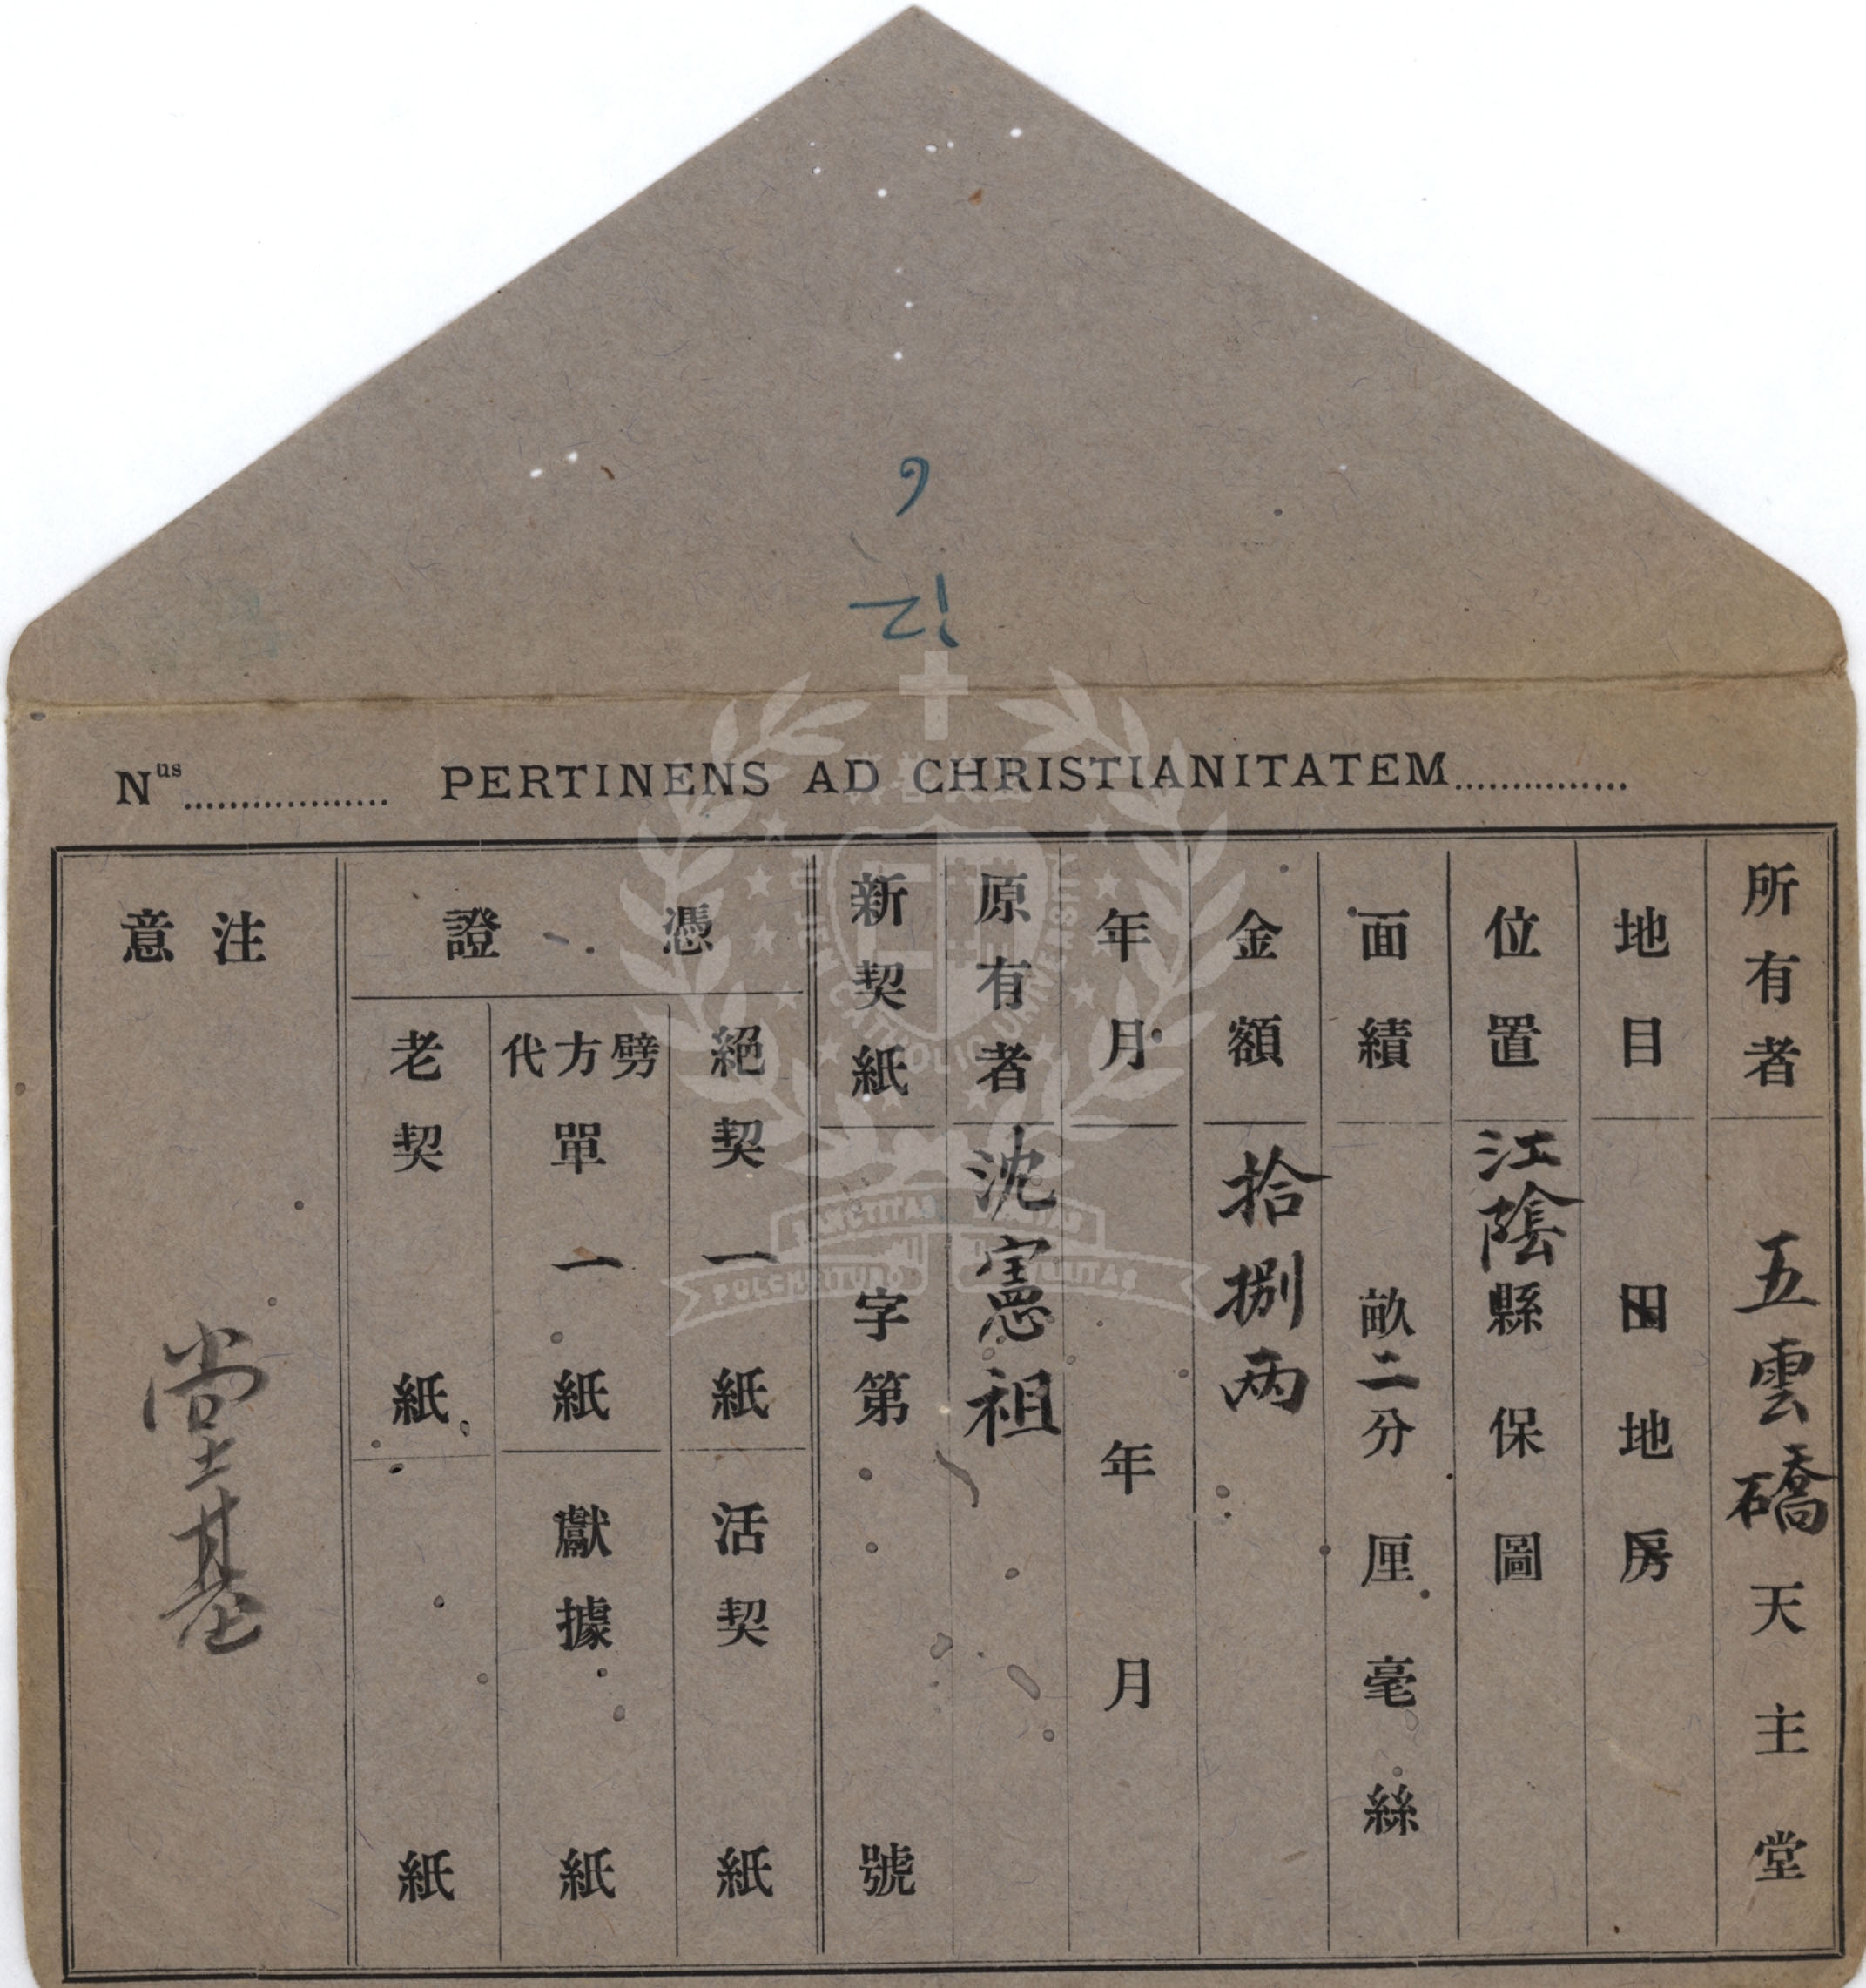 Nus.................. PERTINENS AD CHRISTIANITATEM...............
所有者 五雲礄天主堂
地目 田地房
位置 江陰縣保圖
面積 畝二分厘毫絲
金額 拾捌兩
年月 年月
原有者 沈憲祖
新契紙 字第號
憑證
絕契一紙 活契紙
劈方代單一紙 獻據紙
老契紙 紙
注意
堂基